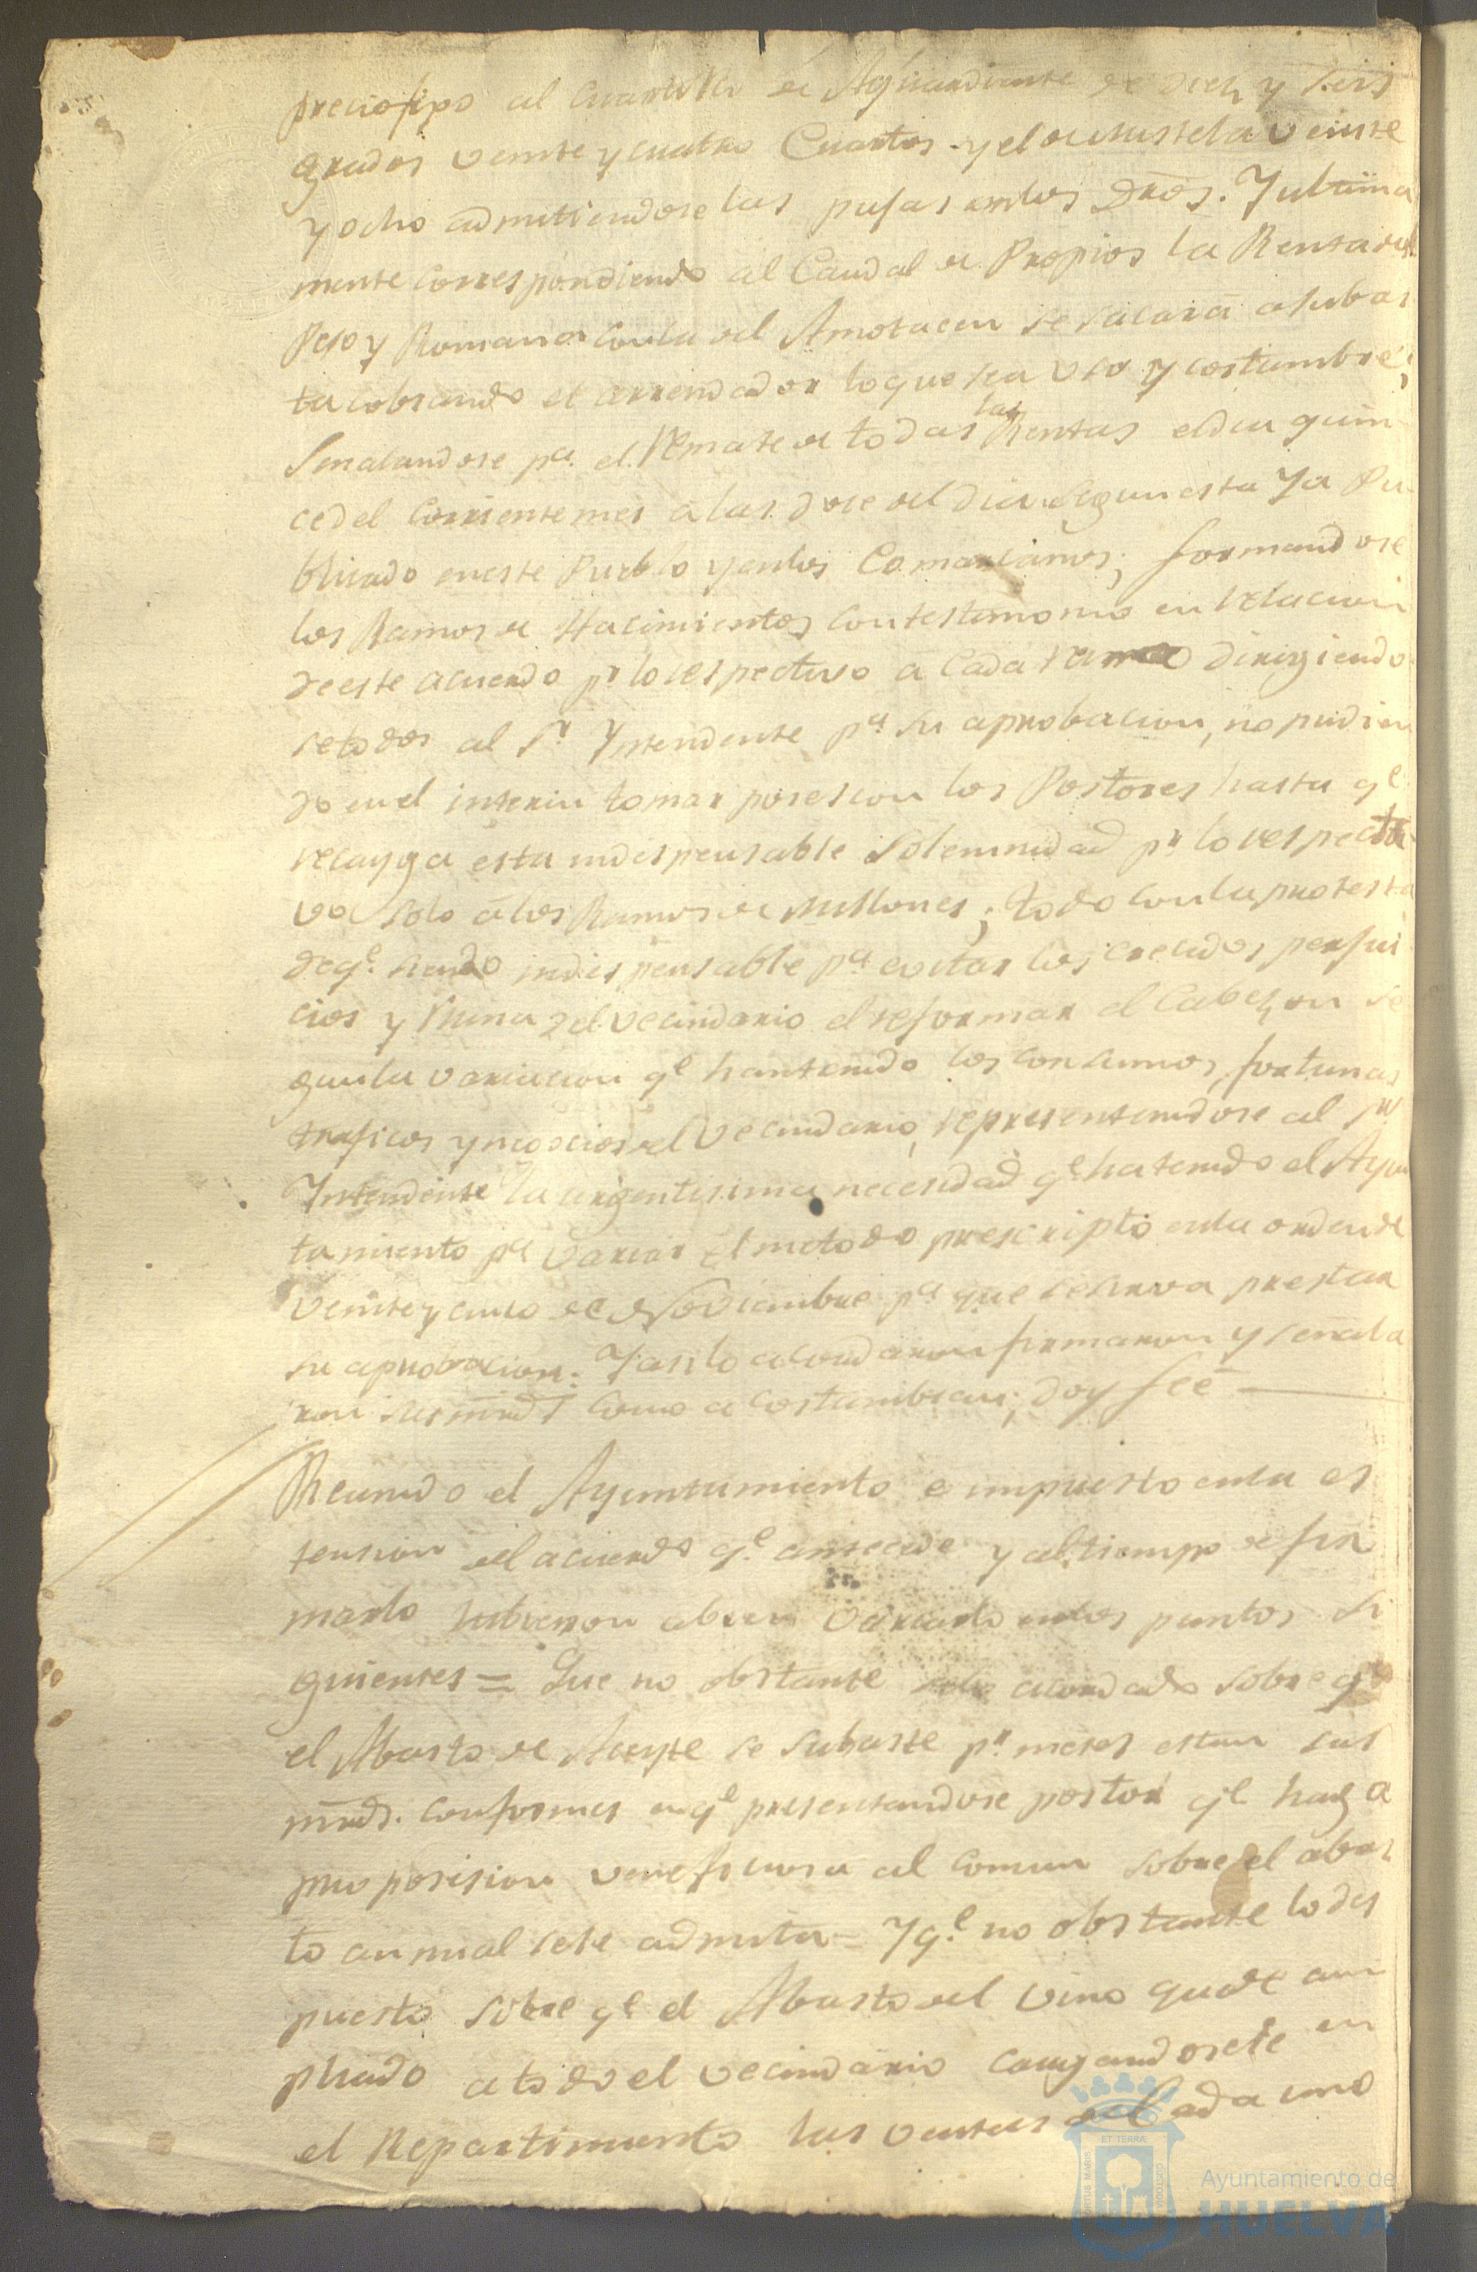 precio fijo al cuartillo de Aguardiente de diez y seis
grados veinte y quatro Cuartos y el de Mistela veinte
y ocho admitiendose las pujas en los Dros. Y ultima
mente correspondiendo al Caudal de Propios la Renta del
Peso y Romana con la del Amotacen se sacará a subas
ta cobrando el arrendador lo que sea uso y costumbre;
Señalandose pa. el Remate de todas las Rentas el dia quin
ce del Corriente mes a las doce del dia segun esta Ya Pu
blicado en este Pueblo y en los Comarcanos; formandose
los Ramos de Hacimientos con testimonio en relacion
de este acuerdo pr lo respectivo a Cada ramo dirigiendo
se todos al Sr. Yntendente pa. su aprobacion, no pudien
do en el interin tomar posesion los Postores hasta qe.
recayga esta indispensable Solemnidad pr lo respecti
vo solo á los Ramos de Millones; todo con la protesta
de qe. siendo indispensable pa evitar los crecidos perjui
cios y Ruina del vecindario el reformar el Cabezon se
gun la variacion qe han tenido los consumos, fortunas
traficos y negocios del vecindario, representandose al Sr
Yntendente la urgentisima necesidad qe ha tenido el Ayun
tamiento pa variar el metodo prescripto en la orden de
veinte y cinco de Noviembre pa que se sirva prestar
su aprobacion: Y asi lo acordaron firmaron y señala
ron sus mrds como acostumbran; doy feé
Reunido el Ayuntamiento e impuesto en la es
tension del acuerdo qe. antecede y al tiempo de fir
marlo hubieron abien variarlo en los puntos si
guientes = Que no obstante lo acordado sobre qe
el Abasto de Aceyte se subaste pr. meses estan sus
mrds. conformes en qe presentandose postor qe haga
proposision veneficiosa al comun sobre el abas
to annual se le admita = Y qe. no obstante lo dis
puesto sobre qe el Abasto del vino quede am
pliado a todo el vecindario cargandosele en
el Repartimiento las ventas de Cada uno
ET TERRÆ
Ayuntamiento de
HUELVA